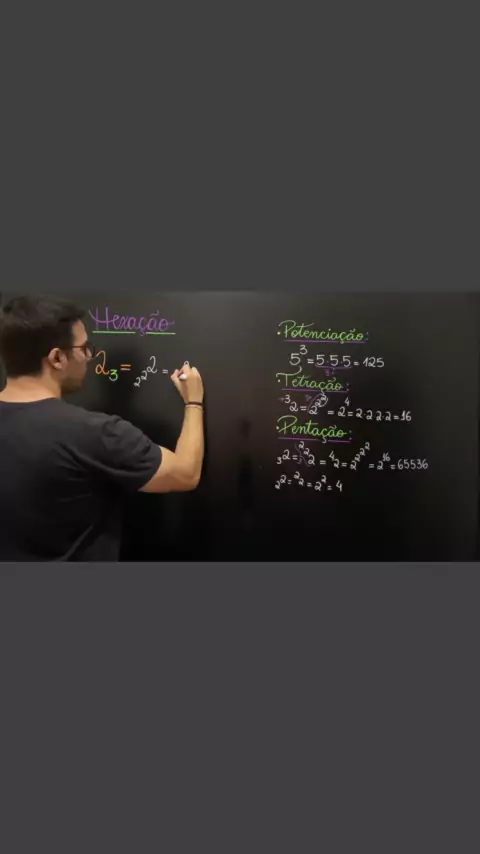 Hexação
2₃ = ₂₂2 =
• Potenciação:
5³ = 5·5·5 = 125
3
• Tetração:
³2 = 2^2^2 = 2⁴ = 2·2·2·2 = 16
• Pentação:
₃2 = ^(²2)2 = ⁴2 = 2^2^2^2 = 2¹⁶ = 65536
₂2 = ²2 = 2² = 4